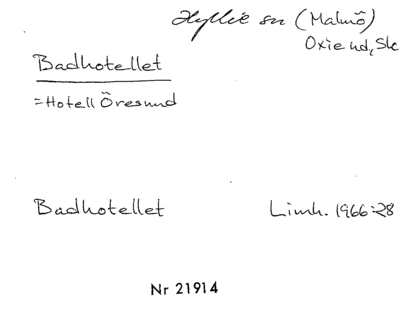 Hyllie sn (Malmö)
Oxie hd, Sk
Badhotellet
= Hotell Öresund
Badhotellet Limh. 1966:28
Nr 21914